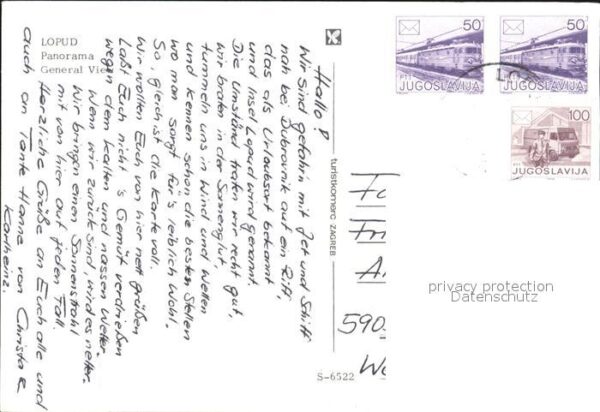 LOPUD
Panorama
General View
Hallo!
Wir sind gefahrn mit Jet und Schiff
nah bei Dubrovnik auf ein Riff,
das als Urlaubsort bekannt
und Insel Lopud wird genannt.
Die Umständ trafen wir recht gut,
wir braten in der Sonnenglut,
tummeln uns in Wind und Wellen
und kennen schon die besten Stellen
wo man sorgt für's leiblich Wohl.
So gleich ist die Karte voll.
Wir wollten Euch von hier nett grüßen
Laßt Euch nicht 's Gemüt verdrießen
wegen dem kalten und nassen Wetter.
Wenn wir zurück sind, wird es netter.
Wir bringen einen Sonnenstrahl
mit von hier auf jeden Fall.
Herzliche Grüße an Euch alle und
auch an Tante Hanne von Christa &
Karlheinz.
turistkomerc ZAGREB
S-6522
50
PTT
JUGOSLAVIJA
50
PTT
JUGOSLAVIJA
100
PTT
JUGOSLAVIJA
LO
Fa
Fr
A
590
We
privacy protection
Datenschutz